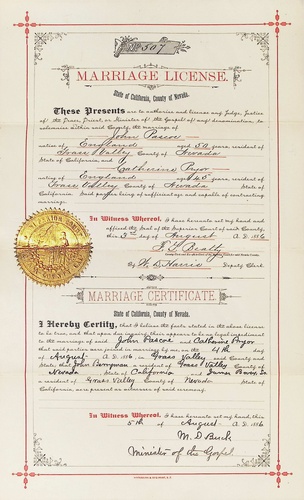 No 507
MARRIAGE LICENSE.
State of California, County of Nevada.
These Presents are to authorize and license any Judge, Justice
of the Peace, Priest, or Minister of the Gospel of any denomination, to
solemnize within said County, the marriage of
John Pascoe
native of England aged 50 years, resident of
Grass Valley County of Nevada
State of California, and
Catherine Pryor
native of England aged 45 years, resident of
Grass Valley County of Nevada State of
California. Said parties being of sufficient age and capable of contracting
marriage.
In Witness Whereof, I have hereunto set my hand and
affixed the Seal of the Superior Court of said County,
this 3rd day of August A. D. 1886
F. G. Beatty
By W. D. Harris Deputy Clerk.
MARRIAGE CERTIFICATE.
State of California, County of Nevada.
I Hereby Certify, that I believe the facts stated in the above license
to be true, and that upon due inquiry there appears to be no legal impediment
to the marriage of said John Pascoe and Catharine Pryor
that said parties were joined in marriage by me, on the 4th day
of August A. D. 1886, in Grass Valley said County and
State; that John Berryman a resident of Grass Valley County of
Nevada State of California and James
a resident of Grass Valley County of Nevada State of
California, are present as witnesses of said ceremony.
In Witness Whereof, I have hereunto set my hand, this
5th of August A. D. 1886
M. D. Buck
Minister of the Gospel.